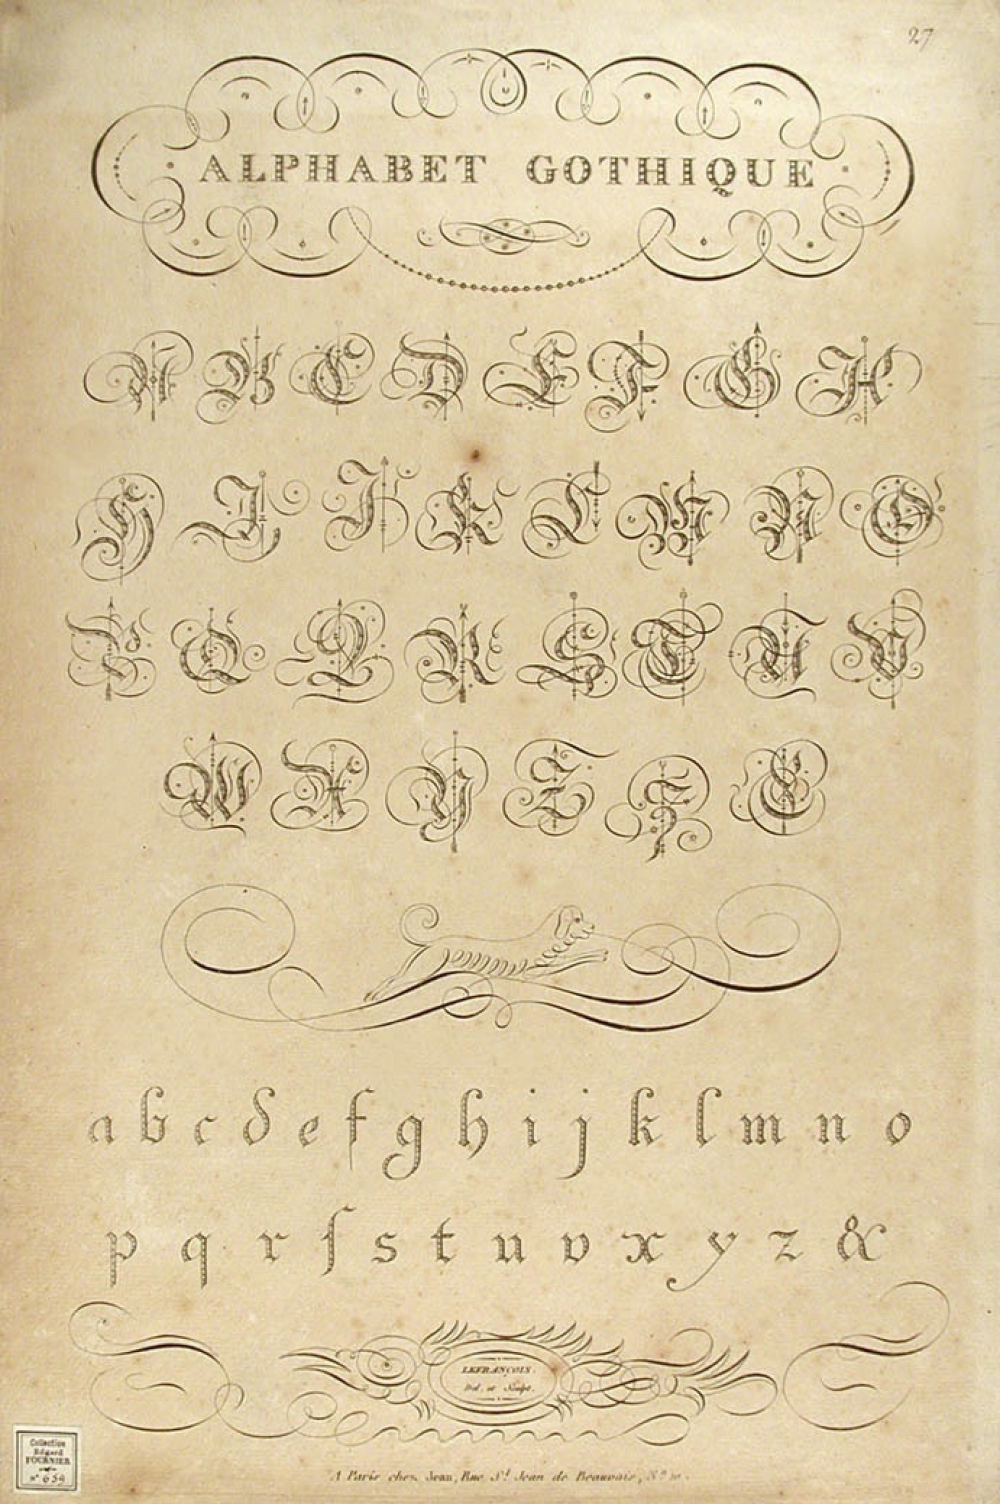 27
ALPHABET GOTHIQUE
A B C D E F G H
H I J K L M N O
P Q Q R S T U V
W X Y Z Z &
a b c d e f g h i j k l m n o
p q r ſ s t u v x y z &
LEFRANÇOIS.
Del. et Sculpt.
Collection
Edgard
FOURNIER
N° 659
A Paris chez Jean, Rue St. Jean de Beauvais, N° 10.